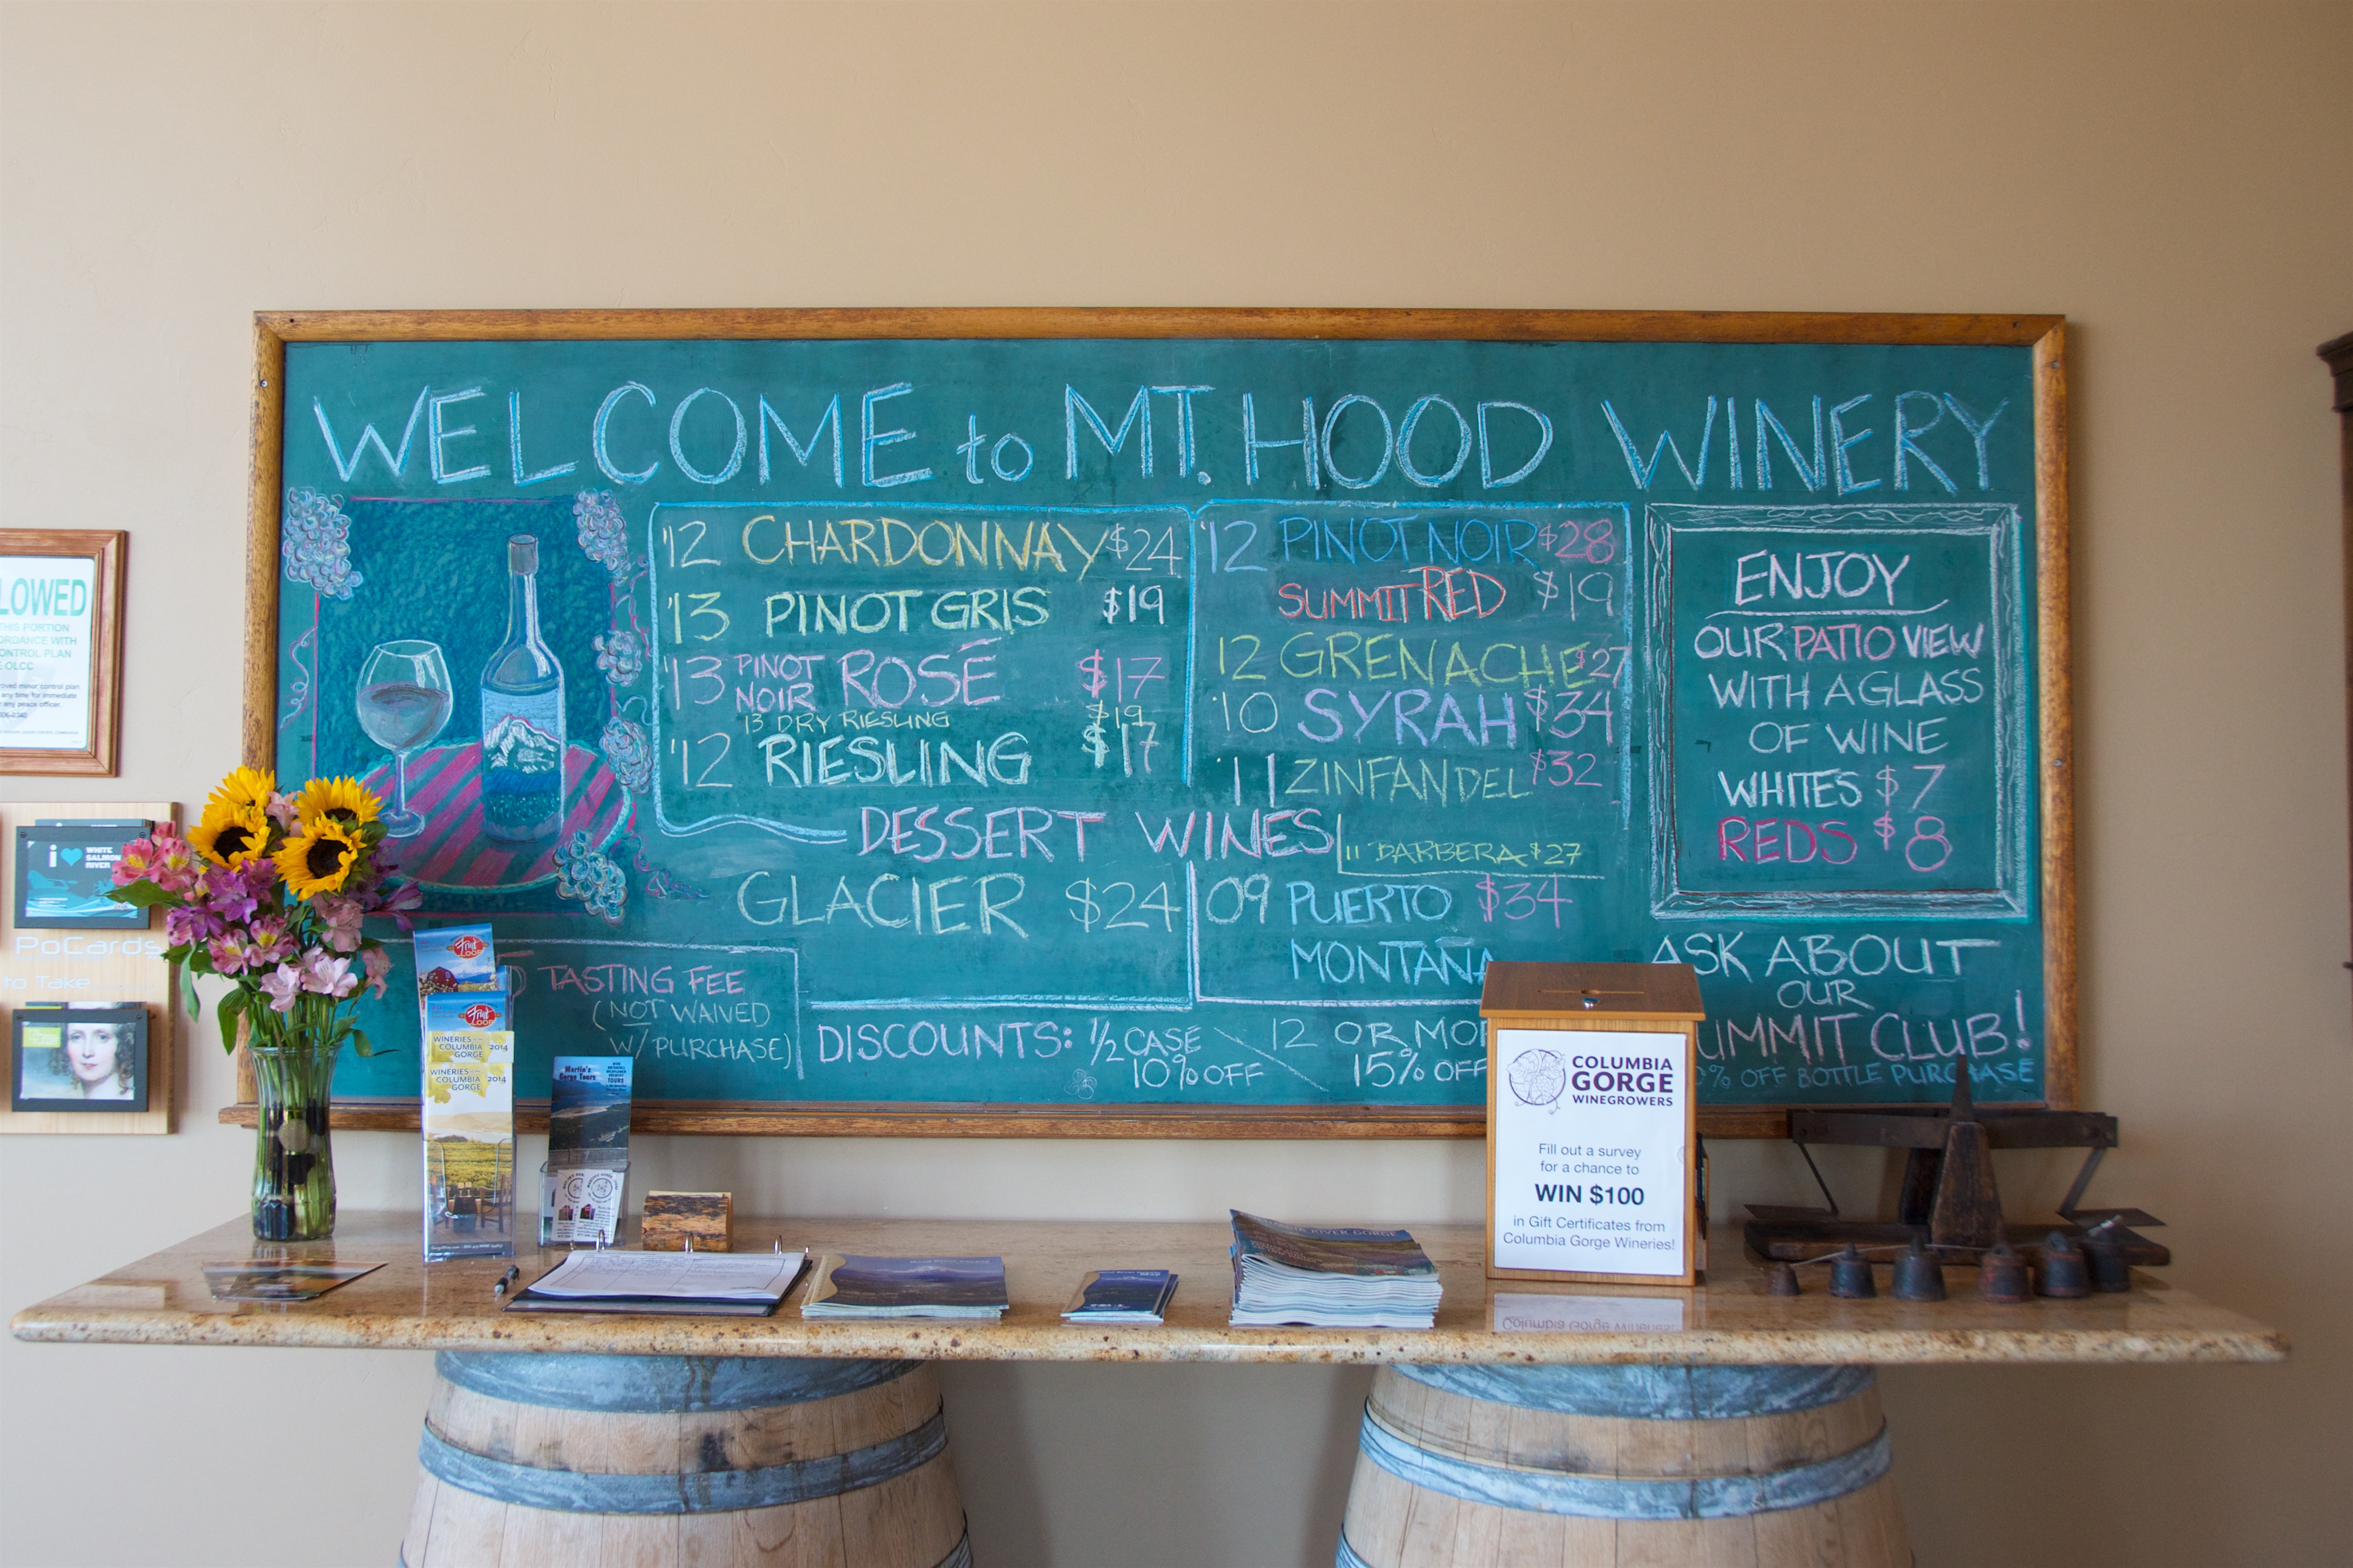 WELCOME to MT. HOOD WINERY
'12 CHARDONNAY $24
'13 PINOT GRIS $19
'13 PINOT NOIR ROSÉ $17
13 DRY RIESLING $19
'12 RIESLING $17
'12 PINOT NOIR $28
SUMMIT RED $19
12 GRENACHE $27
'10 SYRAH $34
'11 ZINFANDEL $32
11 BARBERA $27
DESSERT WINES
GLACIER $24
09 PUERTO $34
MONTAÑA
ENJOY
OUR PATIO VIEW
WITH A GLASS
OF WINE
WHITES $7
REDS $8
ASK ABOUT
OUR
UMMIT CLUB!
% OFF BOTTLE PURCHASE
TASTING FEE
(NOT WAIVED
W/ PURCHASE)
DISCOUNTS: 1/2 CASE
10% OFF
12 OR MO
15% OFF
COLUMBIA
GORGE
WINEGROWERS
Fill out a survey
for a chance to
WIN $100
in Gift Certificates from
Columbia Gorge Wineries!
LOWED
THIS PORTION
ORDANCE WITH
ONTROL PLAN
OLCC
i WHITE
SALMON
RIVER
PoCards
to Take
Fruit
Loop
Fruit
Loop
WINERIES
COLUMBIA 2014
GORGE
WINERIES
COLUMBIA 2014
GORGE
Martin's
Gorge Tours
TOURS
RIVER GORGE